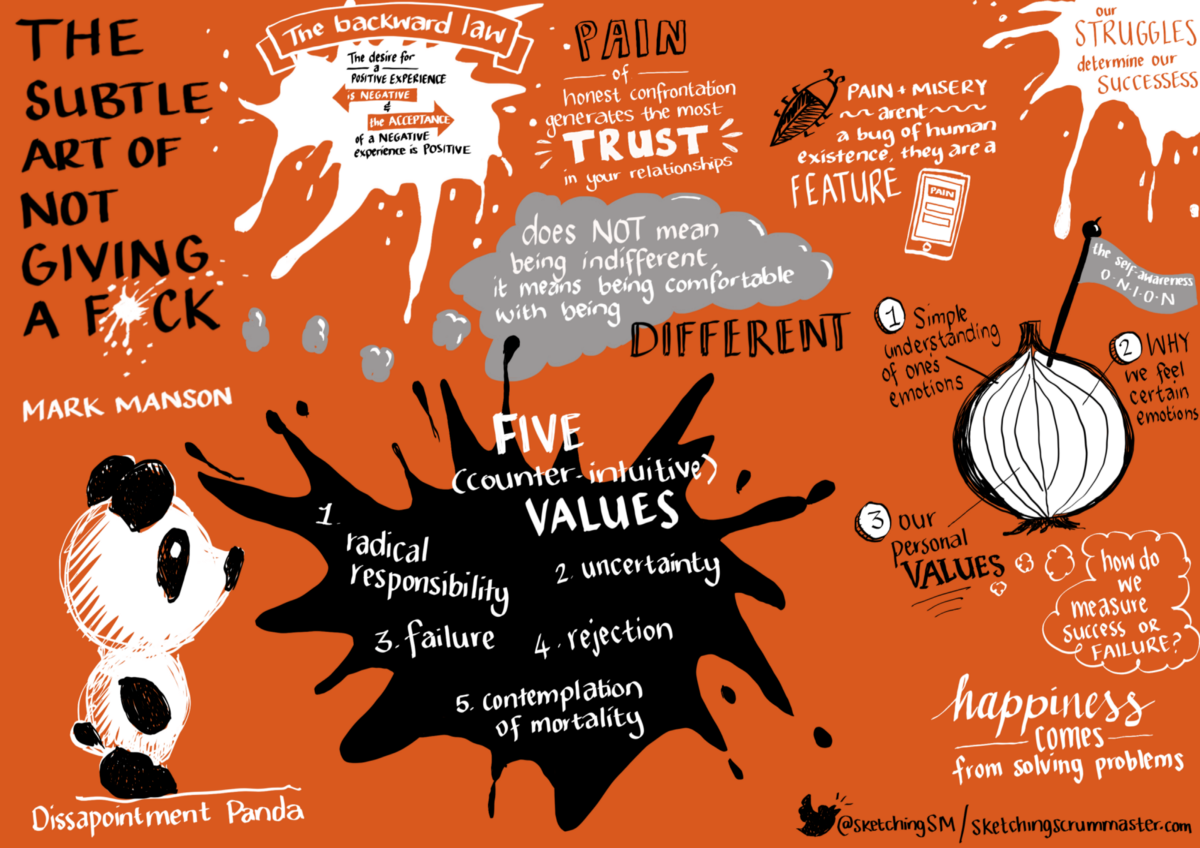 THE
SUBTLE
ART OF
NOT
GIVING
A F CK
MARK MANSON
The backward law
The desire for
a
POSITIVE EXPERIENCE
is NEGATIVE
&
the ACCEPTANCE
of a NEGATIVE
experience is POSITIVE
PAIN
of
honest confrontation
generates the most
TRUST
in your relationships
PAIN + MISERY
arent
a bug of human
existence, they are a
FEATURE
PAIN
our
STRUGGLES
determine our
SUCCESSESS
does NOT mean
being indifferent,
it means being comfortable
with being
DIFFERENT
the self-awareness
O·N·I·O·N
1 Simple
understanding
of one's
emotions
2 WHY
we feel
certain
emotions
3 our
personal
VALUES
how do
we
measure
success OR
FAILURE?
FIVE
(counter-intuitive)
VALUES
1.
radical
responsibility
2. uncertainty
3. failure
4. rejection
5. contemplation
of mortality
happiness
comes
from solving problems
Dissapointment Panda
@sketchingSM / sketchingscrummaster.com